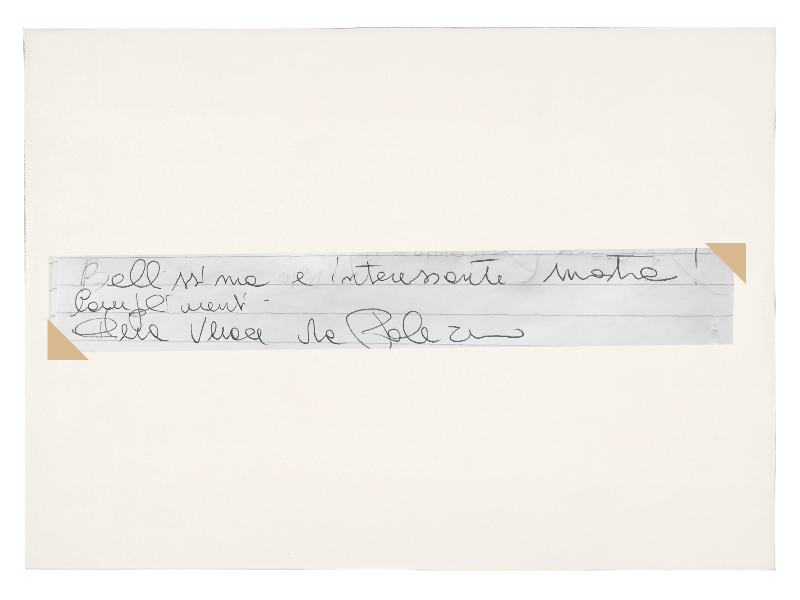 Bellissima e interessante mostra!
Complimenti -
da Palermo